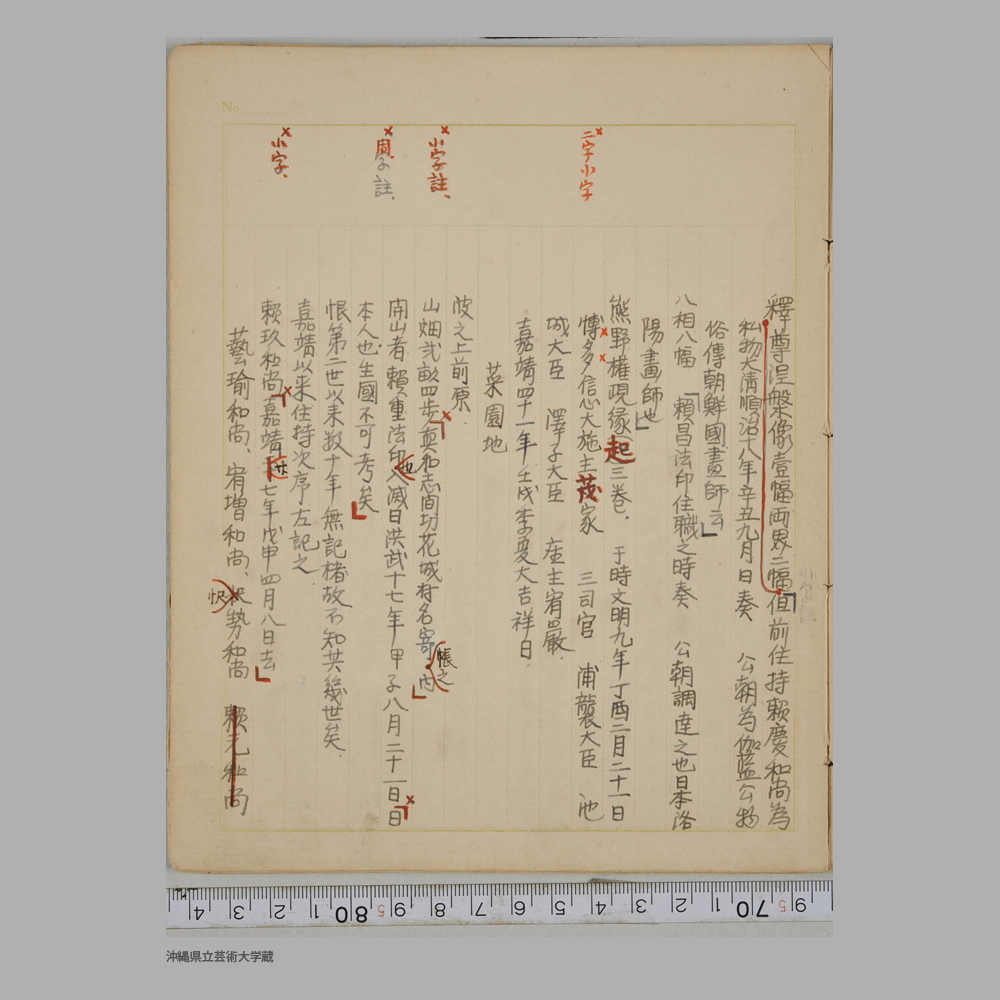 No
二字小字
小字註、
周字註、
小字、
釋尊涅槃像壹幅両界二幅值前住持頼慶和尚為
私物大清順治十八年辛丑九月日奏 公朝為伽藍公物
俗傳朝鮮國畫師云」
八相八幅「頼昌法印住職之時奏 公朝調達之也日本洛
陽畫師也」
熊野權現縁起三巻、于時文明九年丁酉二月二十一日
博多信心大施主茂家 三司官 浦襲大臣 池
城大臣 澤子大臣 座主宥嚴、
嘉靖四十一年壬戌季夏大吉祥日、
菜園地
波之上前原、
山畑弐畝四歩真和志間切花城村名寄帳之内
開山者頼重法印也入滅日洪武十七年甲子八月二十一日日
本人也生國不可考矣
恨第二世以来数十年無記楮故不知其幾世矣、
嘉靖以来住持次序左記之、
頼玖和尚嘉靖廿七年戊申四月八日去
藝瑜和尚、宥増和尚、怾勢和尚 頼元和尚
4 3 2 1 80 5 9 8 7 6 5 4 3 2 1 70 5 9
沖縄県立芸術大学蔵